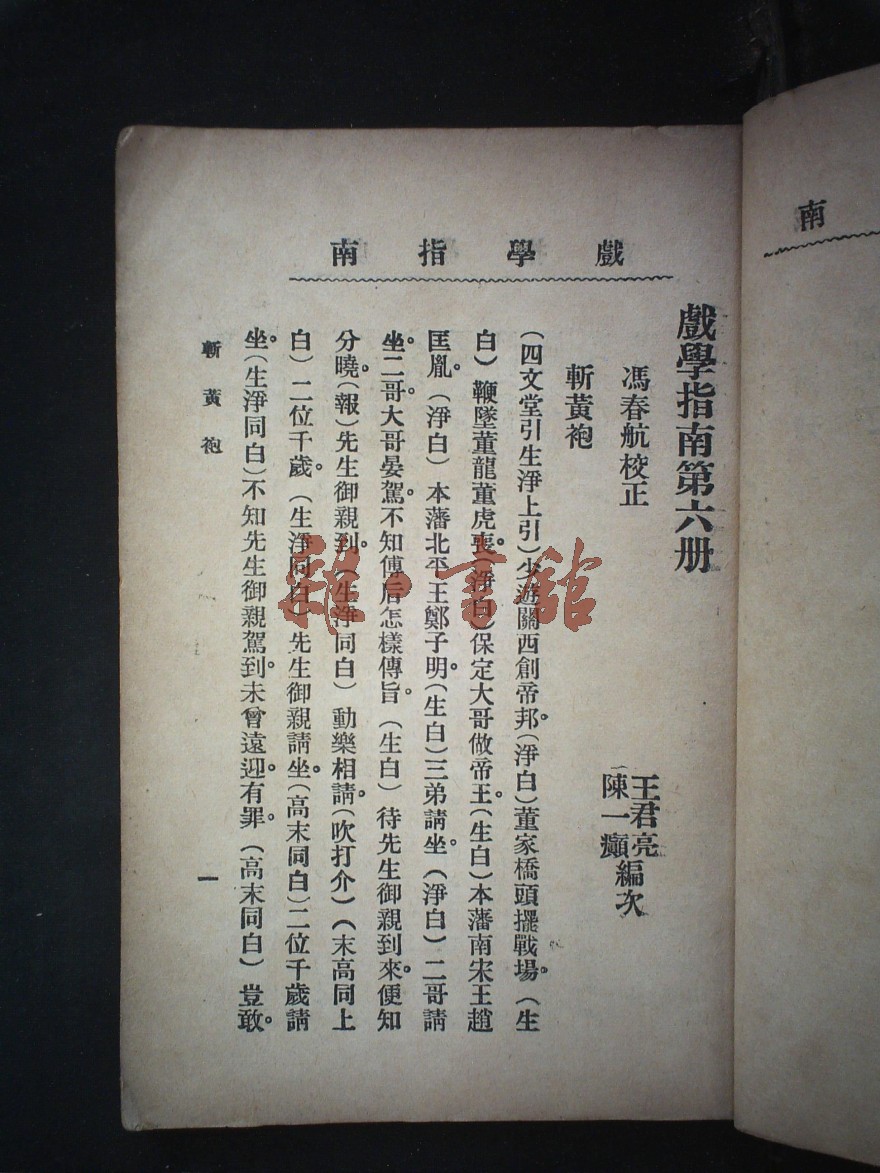 戲學指南
戲學指南第六册
馮春航校正
王君亮
陳一癲
編次
斬黃袍
(四文堂引生淨上引)少遊關西創帝邦。(淨白)董家橋頭擺戰場。(生
白)鞭墜董龍董虎喪。(淨白)保定大哥做帝王。(生白)本藩南宋王趙
匡胤。(淨白)本藩北平王鄭子明。(生白)三弟請坐。(淨白)二哥請
坐。二哥。大哥晏駕。不知傅后怎樣傳旨。(生白)待先生御親到來。便知
分曉。(報)先生御親到。(生淨同白)動樂相請。(吹打介)(末高同上
白)二位千歲。(生淨同白)先生御親請坐。(高末同白)二位千歲請
坐。(生淨同白)不知先生御親駕到。未曾遠迎。有罪。(高末同白)豈敢。
斬黃袍
一
南
雜·書館